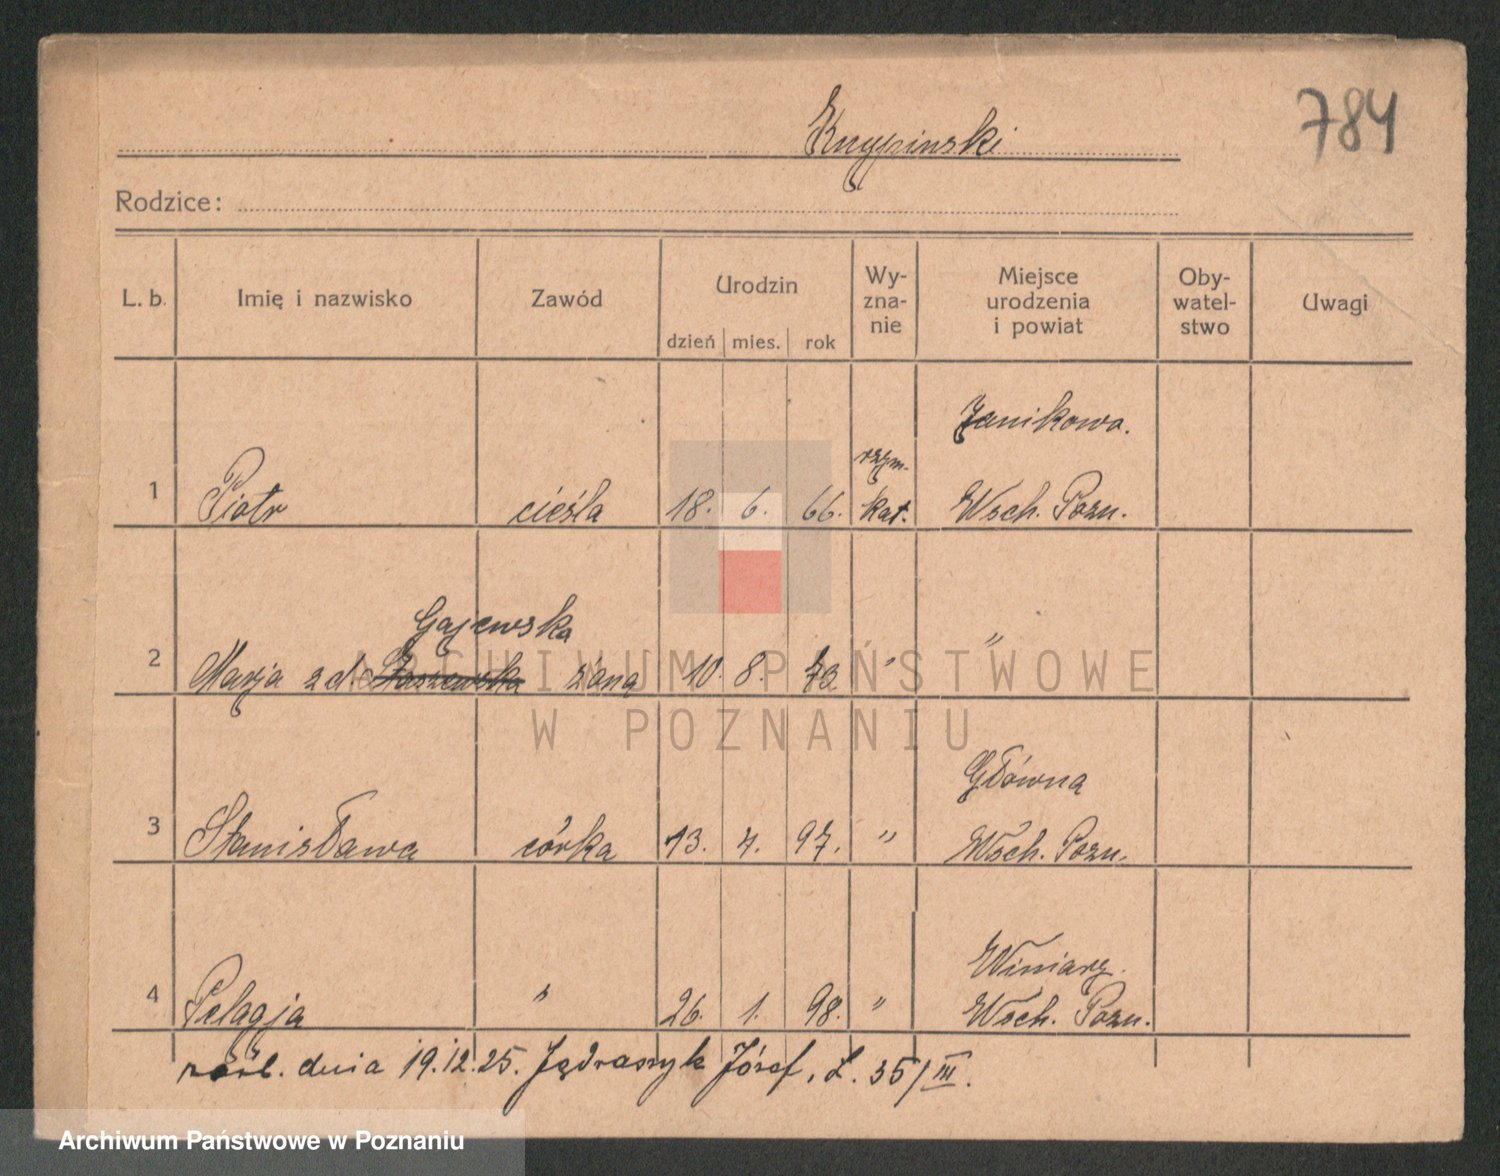 Knypinski 784
Rodzice:
L. b. Imię i nazwisko Zawód Urodzin dzień mies. rok Wy-zna-nie Miejsce urodzenia i powiat Oby-watel-stwo Uwagi
Janikowo.
rzym-
1 Piotr cieśla 18. 6. 66. kat. Wsch. Pozn.
Gajewska
2 Marja z d. żona 10. 8. 73 " "
Główna
3 Stanisława córka 13. 4. 97. " Wsch. Pozn.
Winiary.
4 Pelagja " 26. 1. 98. " Wsch. Pozn.
zaśl. dnia 19.12.25. Jędraszyk Józef, L. 35/III.
ARCHIWUM PAŃSTWOWE
W POZNANIU
Archiwum Państwowe w Poznaniu